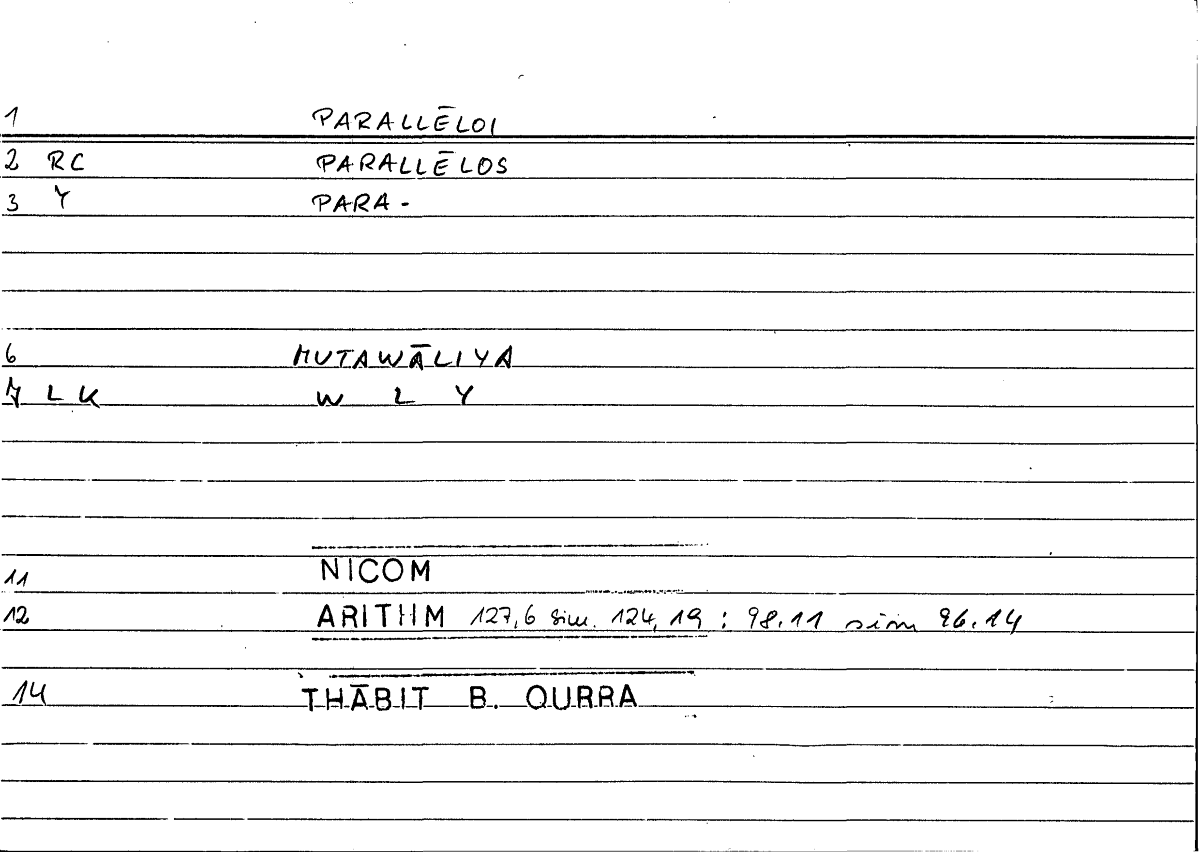 1 PARALLĒLOI
2 RC PARALLĒLOS
3 Y PARA-
6 MUTAWĀLIYA
7 LK W L Y
11 NICOM
12 ARITHM 127,6 sim. 124,19 : 98.11 sim 96.14
14 THĀBIT B. QURRA